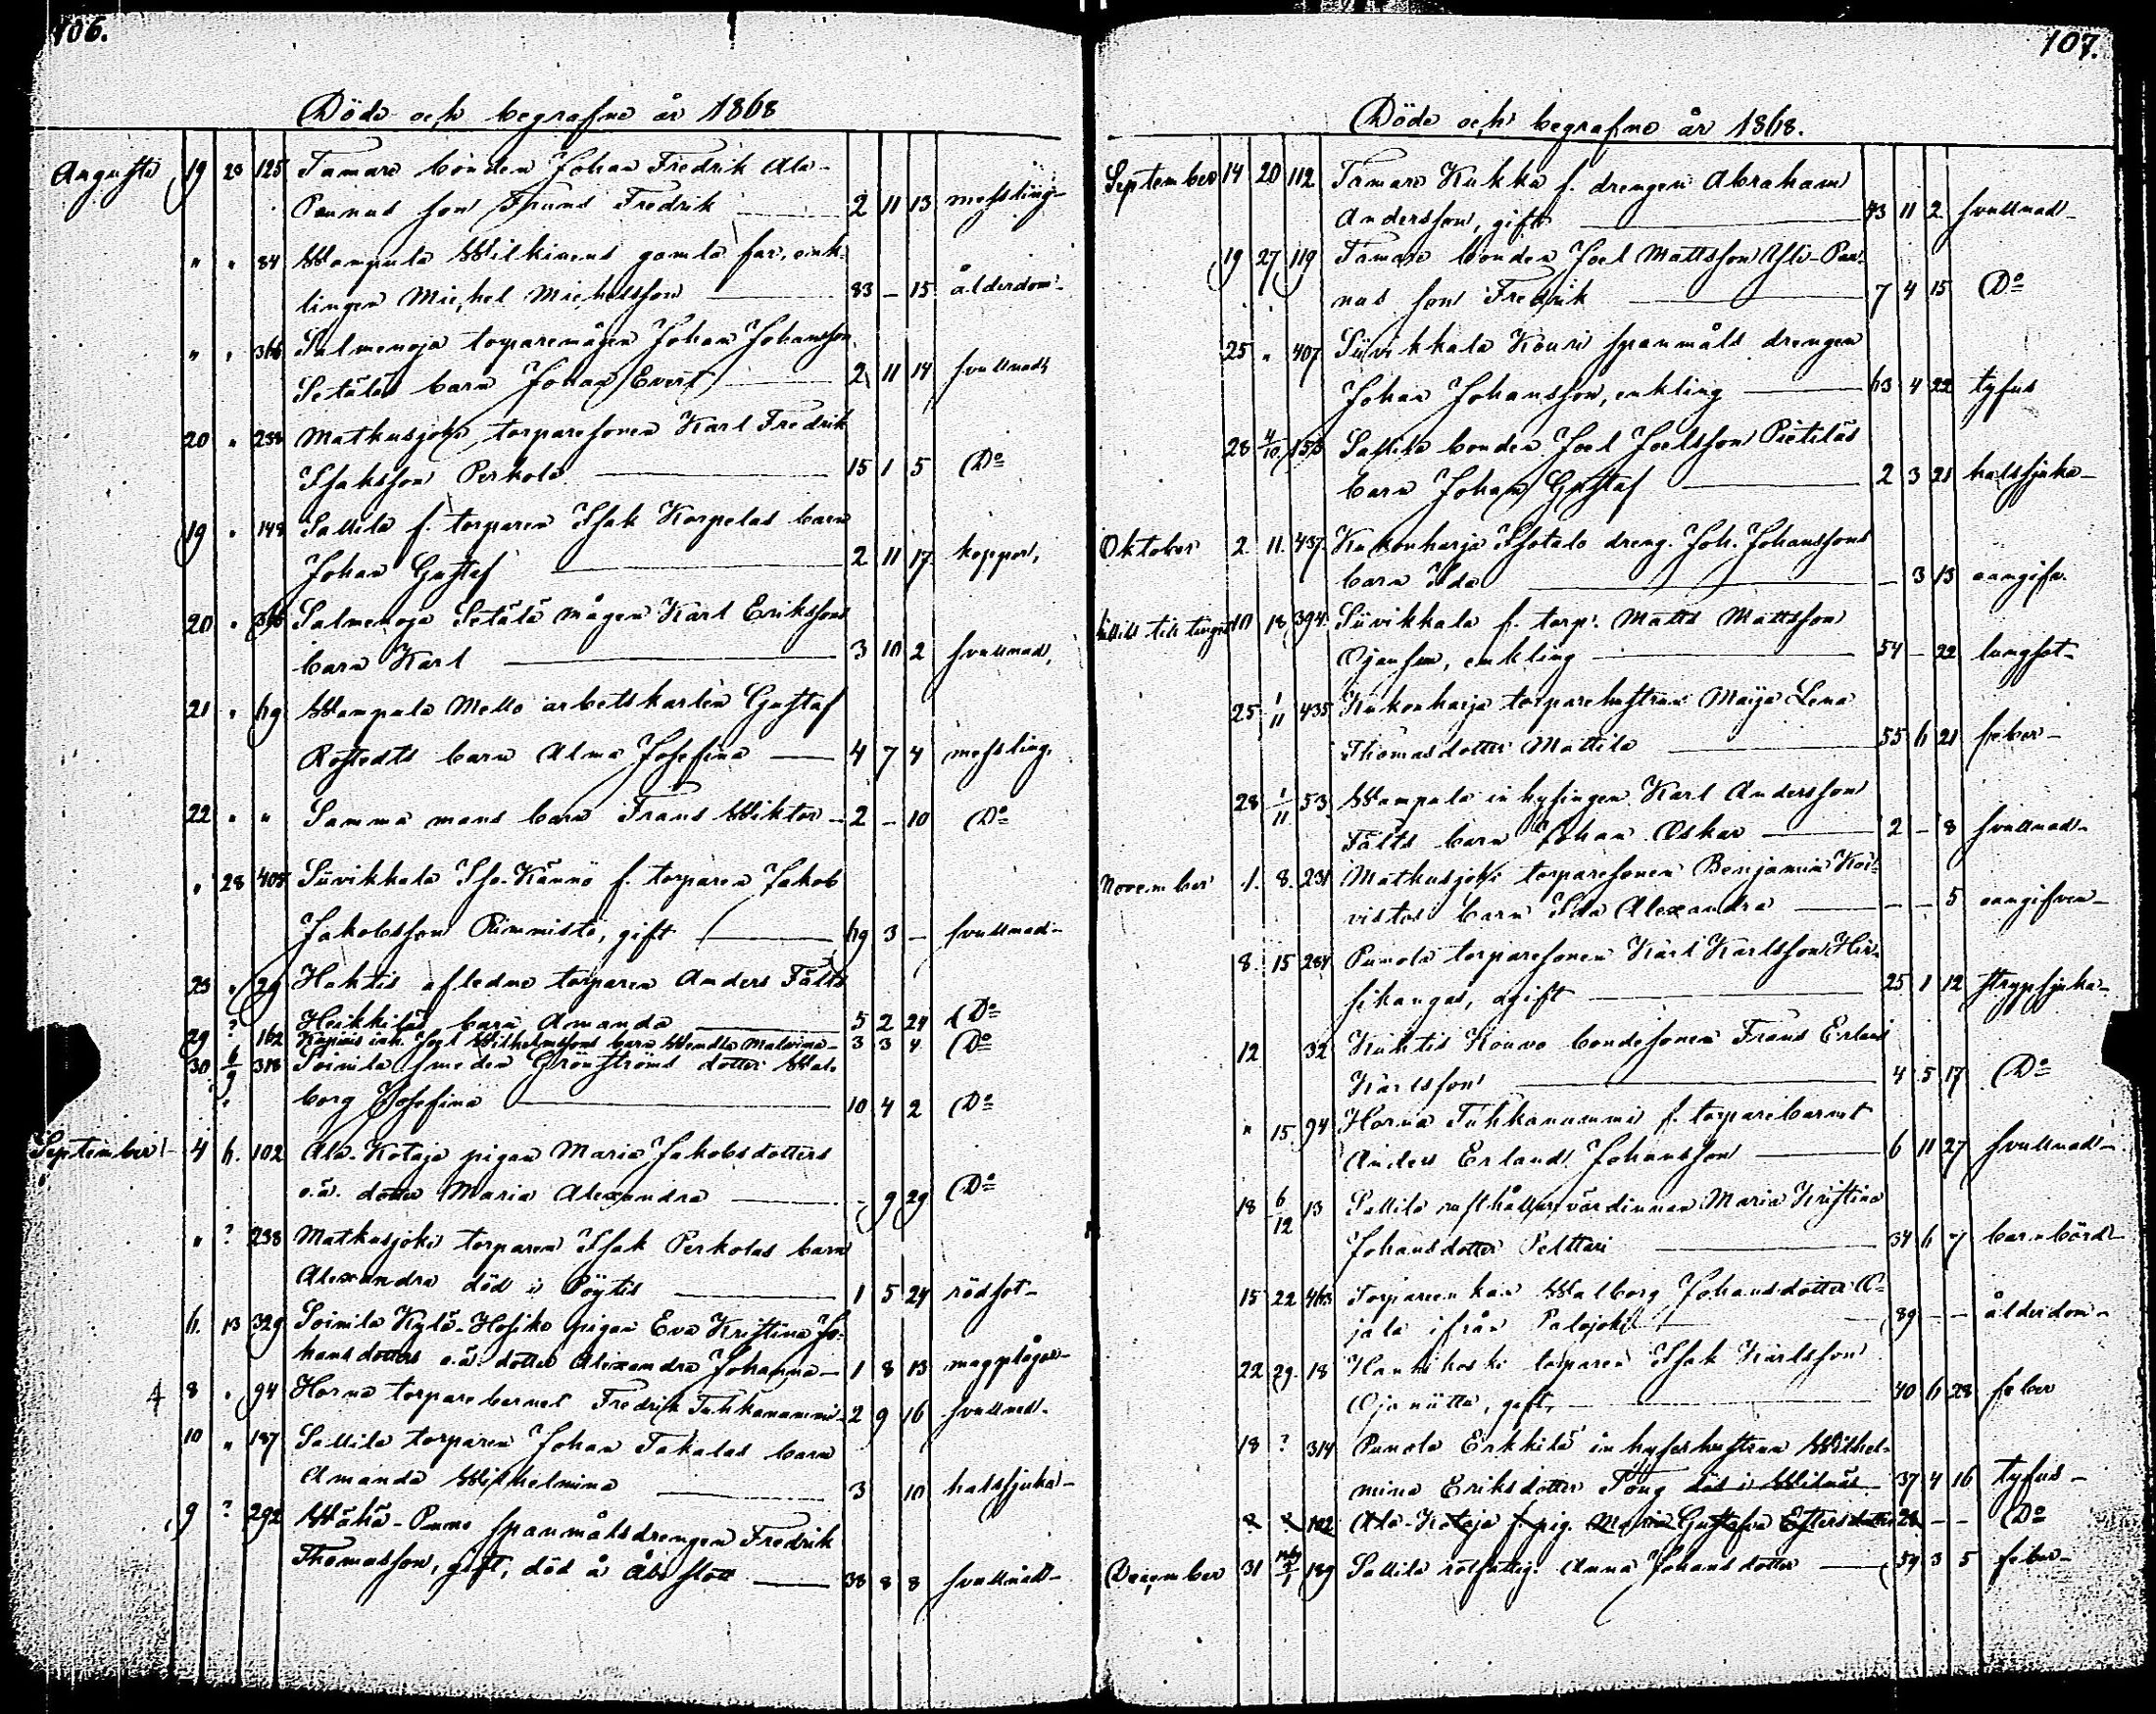 106.
Döde och begrafne år 1868
Augusti 19 23 125 Tamare bonden Johan Fredrik Ala-
Pannus son Frans Fredrik 2 11 13 messling
" " 84 Wampula Wilkinens gamla far, enk-
lingen Michel Michelsson 83 - 15 ålderdom
" " 366 Salmenoja torparemågen Johan Johansson
Setäläs barn Johan Evert 2 11 14 svullnad
20 " 238 Matkusjoki torparesonen Karl Fredrik
Isaksson Perkola 15 1 5 Do
19 " 148 Sallila f. torparen Isak Korpelas barn
Johan Gustaf 2 11 17 koppor,
20 " 366 Salmenoja Setälä mågen Karl Erikssons
barn Karl 3 10 2 svullnad,
21 " 69 Wampula Mello arbetskarlen Gustaf
Rostedts barn Alma Josefina 4 7 4 messling
22 " " Samma mans barn Frans Wiktor 2 - 10 Do
" 28 405 Süvikkala Iso-Kännö f. torparen Jakob
Jakobsson Rimmistö, gift 69 3 - svullnad
23 " 29 Huhtis afledne torparen Anders Fälts
Heikkiläs barn Amanda 5 2 24 Do
29 ? 162 inh. Joel Wilhelmssons barn Wendla Malvina 3 3 4 Do
30 6/9 318 Soinila smeden Grönströms dotter Wal-
borg Josefina 10 4 2 Do
September 4 6. 102 Ala-Kotaja pigan Maria Jakobsdotters
o.ä. dotter Maria Alexandra - 9 29 Do
" ? 238 Matkusjoki torparen Isak Perkolas barn
Alexandra död i Pöytis 1 5 24 rödsot
6. 13 329 Soinila Kylä-Hosiko pigan Eva Kristina Jo-
hansdotters o.ä. dotter Alexandra Johanna 1 8 13 magplågor
8 " 94 Horna torparebarnet Fredrik Tuhkanummi 2 9 16 svullnad
10 " 187 Sallila torparen Johan Takalas barn
Amanda Wilhelmina 3 10 halssjuka
9 ? 292 Wähä-Punno spanmålsdrengen Fredrik
Thomasson, gift, död å Åbo slott 38 8 8 svullnad
107.
Döde och begrafne år 1868.
September 14 20 112 Tamare Kukka f. drengen Abraham
Andersson, gift 43 11 2 svullnad
19 27 119 Tamare bonden Joel Mattsson Yli-Pan-
nus son Fredrik 7 4 15 Do
25 " 407 Süvikkala Kouri spanmåls drengen
Johan Johansson, enkling 63 4 22 tyfus
28 4/10 153 Sallila bonden Joel Joelsson Pietiläs
barn Johan Gustaf 2 3 21 halssjuka
Oktober 2. 11. 437. Kukonharja Isotalo dreng. Joh. Johanssons
barn Ida - 3 13 oangifv.
till tinget 10 18 394 Süvikkala f. torp. Matts Mattsson
Ojansuu, enkling 54 - 22 lungsot
25 1/11 435 Kukonharja torparehustrun Maija Lena
Thomasdotter Mattila 55 6 21 feber
28 1/11 53 Wampula inhysingen Karl Andersson
Fälts barn Johan Oskar 2 - 8 svullnad
November 1. 8. 231 Matkusjoki torparesonen Benjamin Koi-
vistos barn Ida Alexandra - - 5 oangifven
8. 15 284 Punola torparesonen Karl Karlsson Hir-
sikangas, ogift 25 1 12 strypsjuka
12 32 Huhtis Kouvo bondesonen Frans Erland
Karlsson 4 5 17 Do
" 15 94 Horna Tuhkanummi f. torparebarnet
Anders Erland Johansson 6 11 27 svullnad
18 6/12 13 Sallila rusthållarevärdinnan Maria Kristina
Johansdotter Pelttari 34 6 7 barnbörd
15 22 463 Torpareenkan Walborg Johansdotter O-
jala ifrån Palojoki 89 - - ålderdom
22 29. 18 Hanhikoski torparen Isak Karlsson
Ojanütta, gift, 40 6 28 feber
18 ? 314 Punola Erkkilä inhyseshustrun Wilhel-
mina Eriksdotter Tång död i 37 4 16 tyfus
? ? 102 Ala-Kotaja f. pig. Maria Gustafva Estersdotter 26 - - Do
December 31 189 Sallila rotfattig. Anna Johansdotter 59 3 5 feber